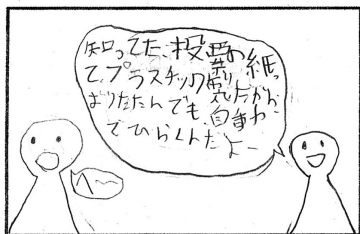 知ってた.投票の紙っ
てプラスチック製だから、
おりたたんでも.自動
でひらくんだよー
へ〜